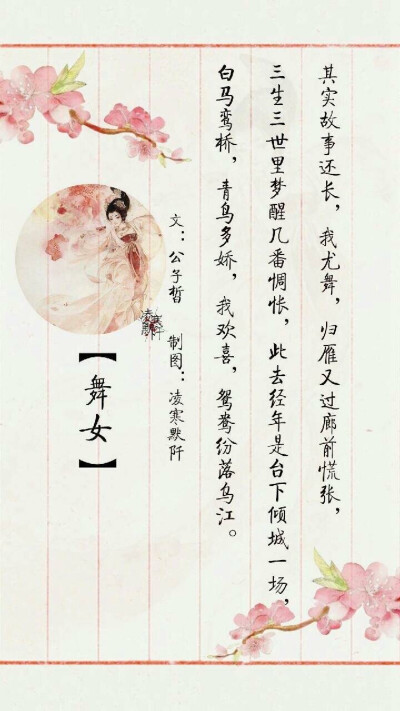 其实故事还长，我尤舞，归雁又过廊前慌张，
三生三世里梦醒几番惆怅，此去经年是台下倾城一场，
白马鸾桥，青鸟多娇，我欢喜，鸳鸯纷落乌江。
文：公子皙 制图：凌寒默阡
【舞女】